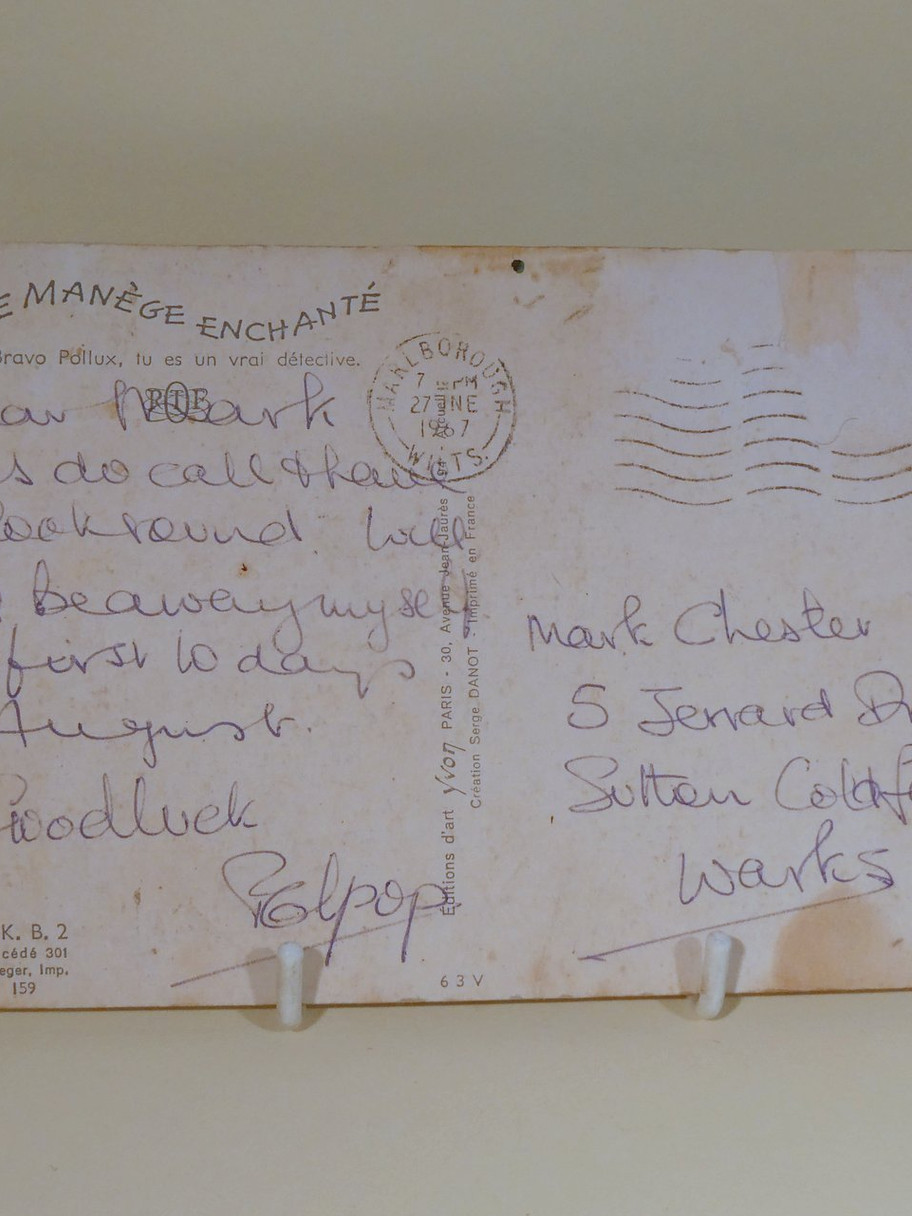 E MANÈGE ENCHANTÉ
Bravo Pollux, tu es un vrai détective.
ORTF
ar Mark
s do call & have
look round. Will
be away myself
first 10 days
August.
Good luck
K. B. 2
cédé 301
eger, Imp.
159
MARLBOROUGH
7 PM
27 NE
1967
WILTS.
Éditions d'art yvon PARIS - 30, Avenue Jean-Jaurès
Création Serge DANOT - Imprimé en France
6 3 V
Mark Chester
5 Jerrard Dr
Sutton Coldf
Warks